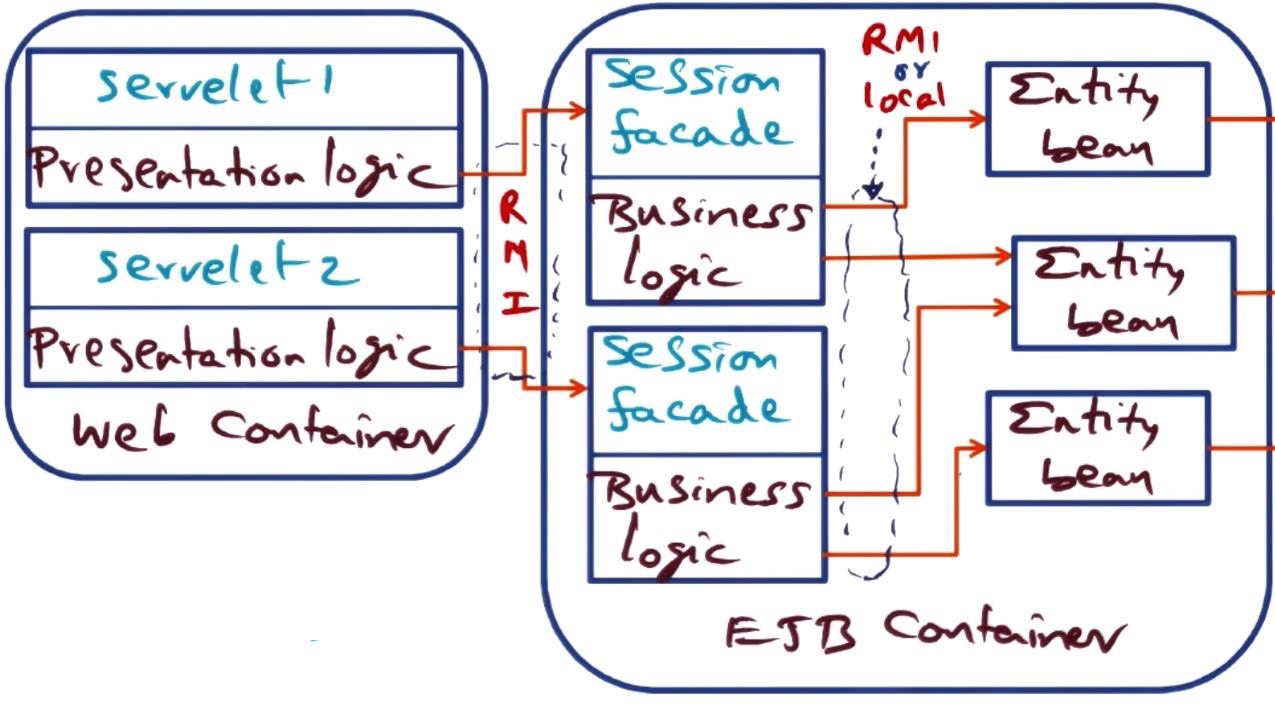 servelet 1
Presentation logic
servelet 2
Presentation logic
Web Container
R
M
I
Session
facade
Business
logic
Session
facade
Business
logic
RMI
or
local
Entity
bean
Entity
bean
Entity
bean
EJB Container